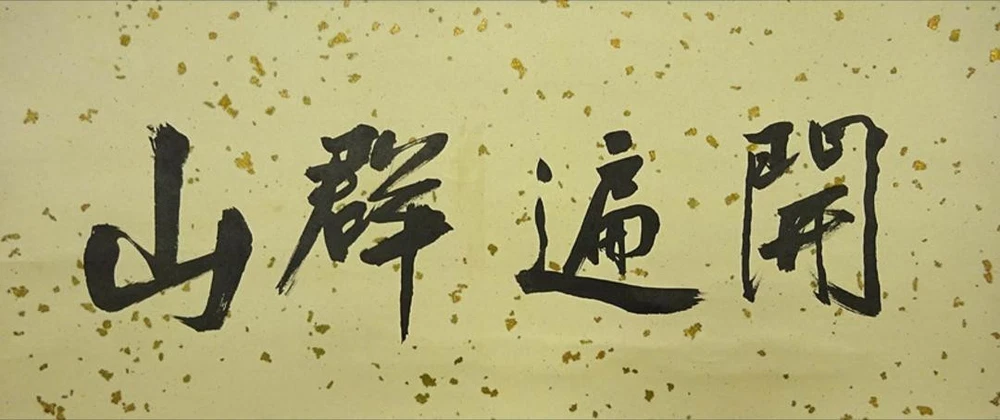 開遍群山